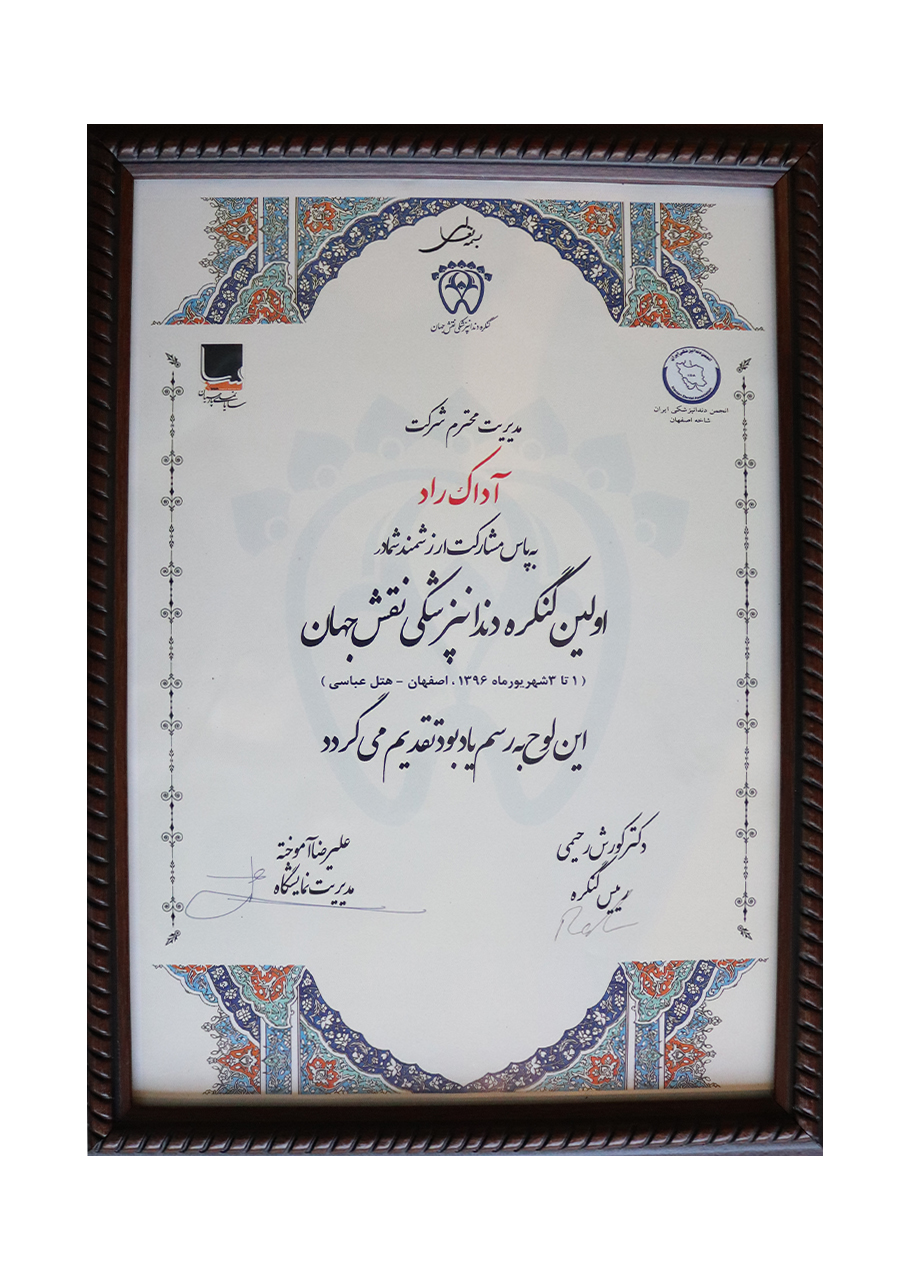 بسمه تعالی
کنگره دندانپزشکی نقش جهان
انجمن دندانپزشکی ایران
شاخه اصفهان
مدیریت محترم شرکت
آداک راد
به پاس مشارکت ارزشمند شما در
اولین کنگره دندانپزشکی نقش جهان
( ۱ تا ۳ شهریورماه ۱۳۹۶ ، اصفهان - هتل عباسی )
این لوح به رسم یادبود تقدیم می گردد
دکتر کورش رحیمی
رییس کنگره
علیرضا آموخته
مدیریت نمایشگاه